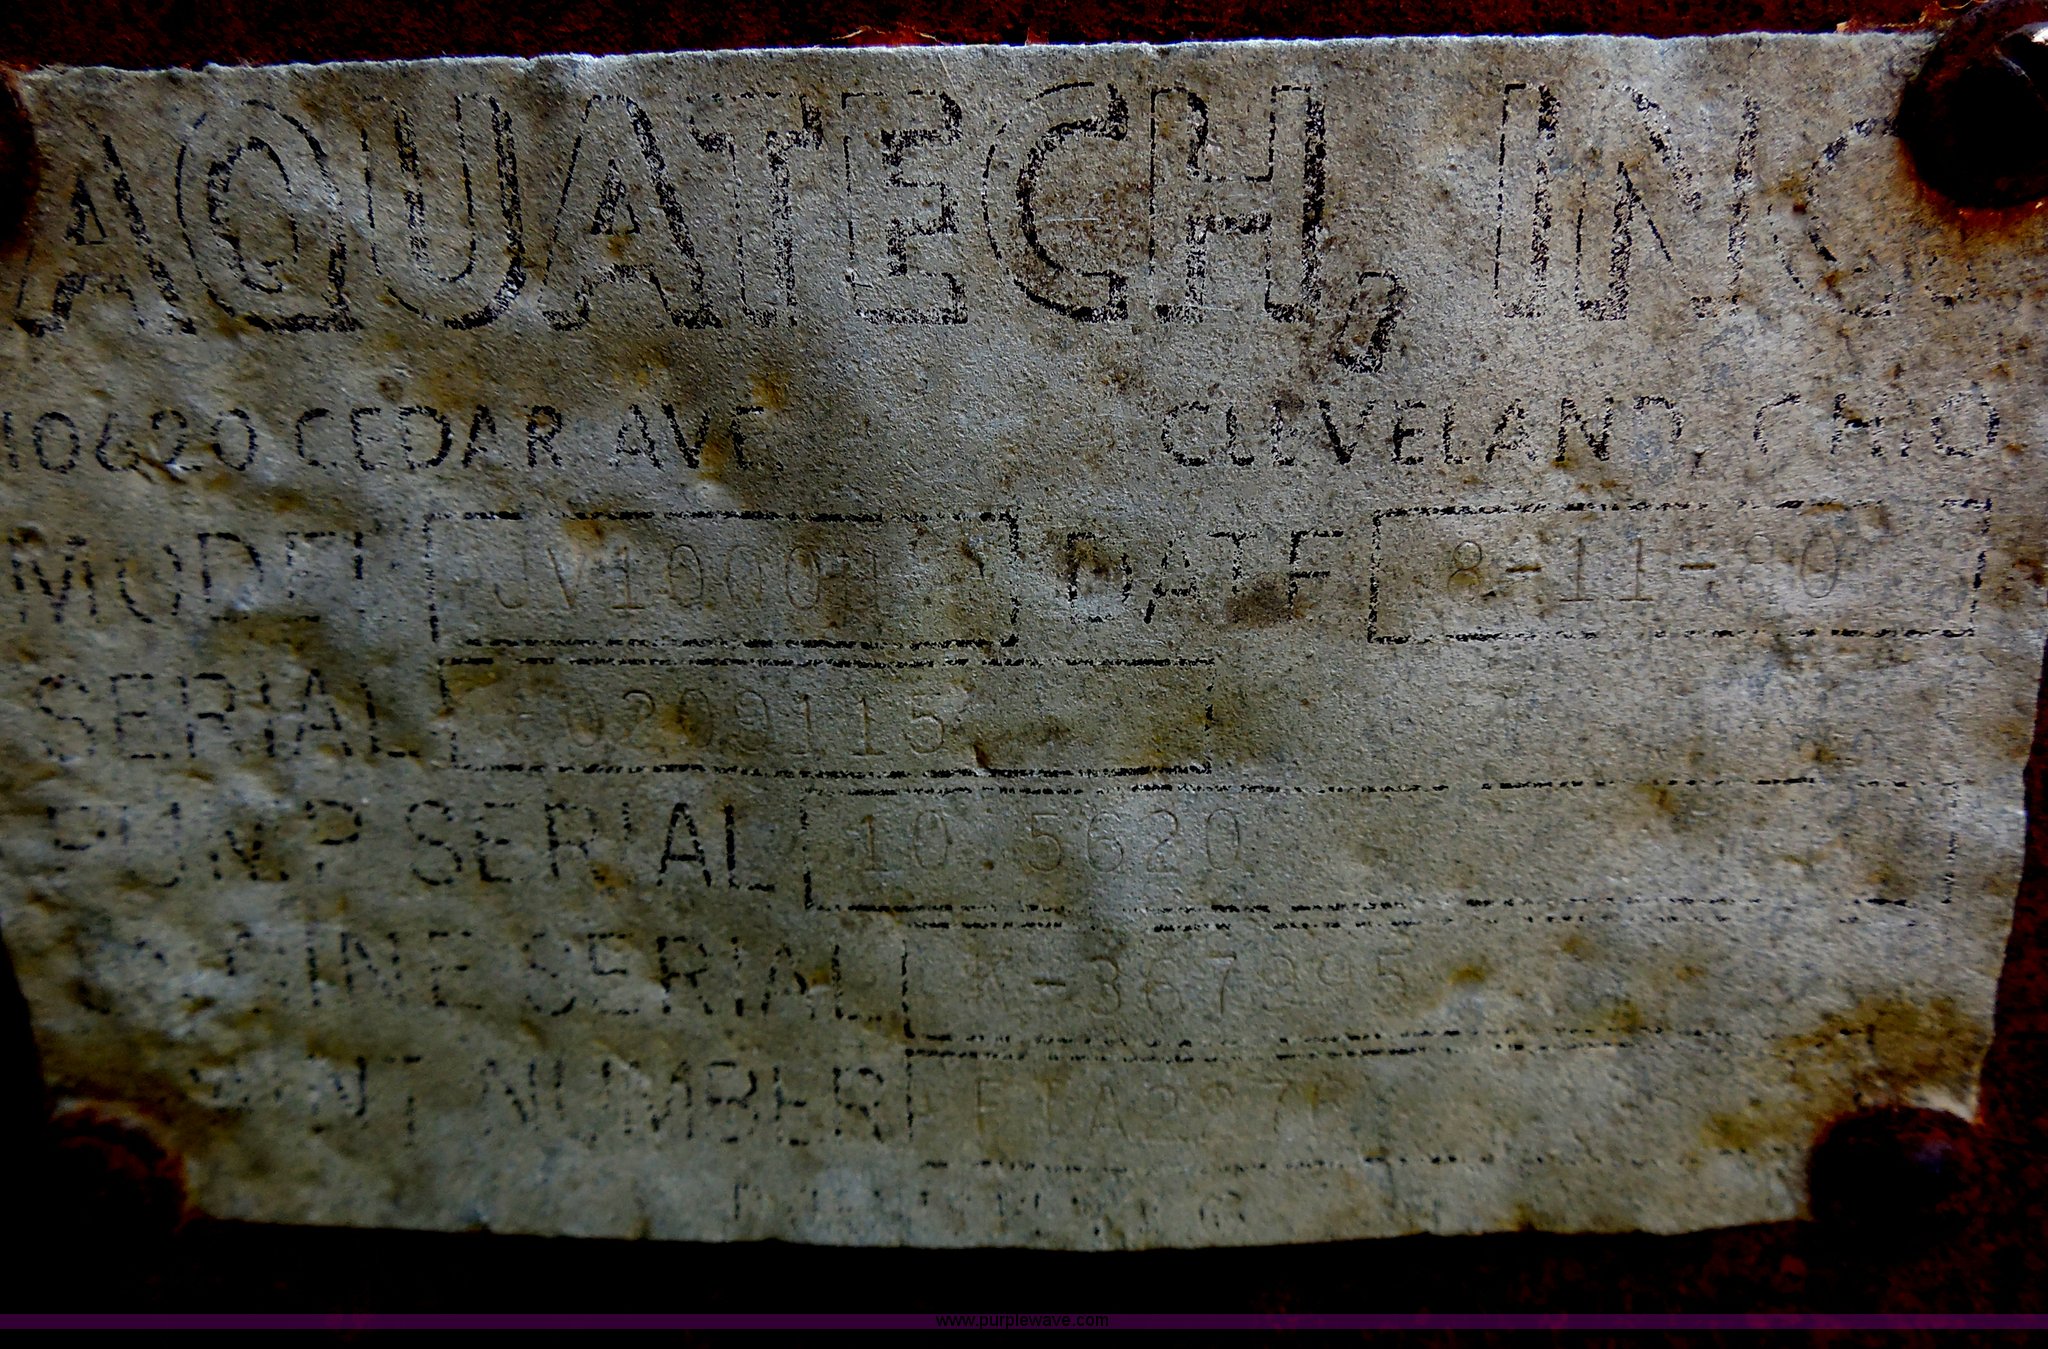 AQUATECH, INC.
10620 CEDAR AVE. CLEVELAND, OHIO
MODEL JV1000 DATE 8-11-80
SERIAL 0209115
PUMP SERIAL 10.5620
ENGINE SERIAL K-367295
PAINT NUMBER
www.purplewave.com